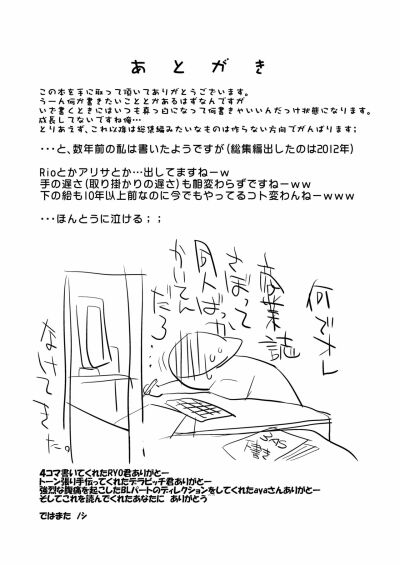 あとがき
この本を手に取って頂いてありがとうございます。
うーん何か書きたいこととかあるはずなんですが
いざ書くときにはいつも真っ白になって何書きゃいいんだっけ状態になります。
成長してないですね俺…
とりあえず、これ以降は総集編みたいなものは作らない方向でがんばります；
・・・と、数年前の私は書いたようですが(総集編出したのは2012年)
Rioとかアリサとか…出してますねーw
手の遅さ(取り掛かりの遅さ)も相変わらずですねーww
下の絵も10年以上前なのに今でもやってるコト変わんねーwww
・・・ほんとうに泣ける；；
何でオレ
商業誌
さぼって
同人ばっか
かいてん
だろ…
なけてきた。
4コマ書いてくれたRYO君ありがとー
トーン張り手伝ってくれたデラビッチ君ありがとー
強烈な腹痛を起こしたBLパートのディレクションをしてくれたayaさんありがとー
そしてこれを読んでくれたあなたに ありがとう
ではまた ノシ